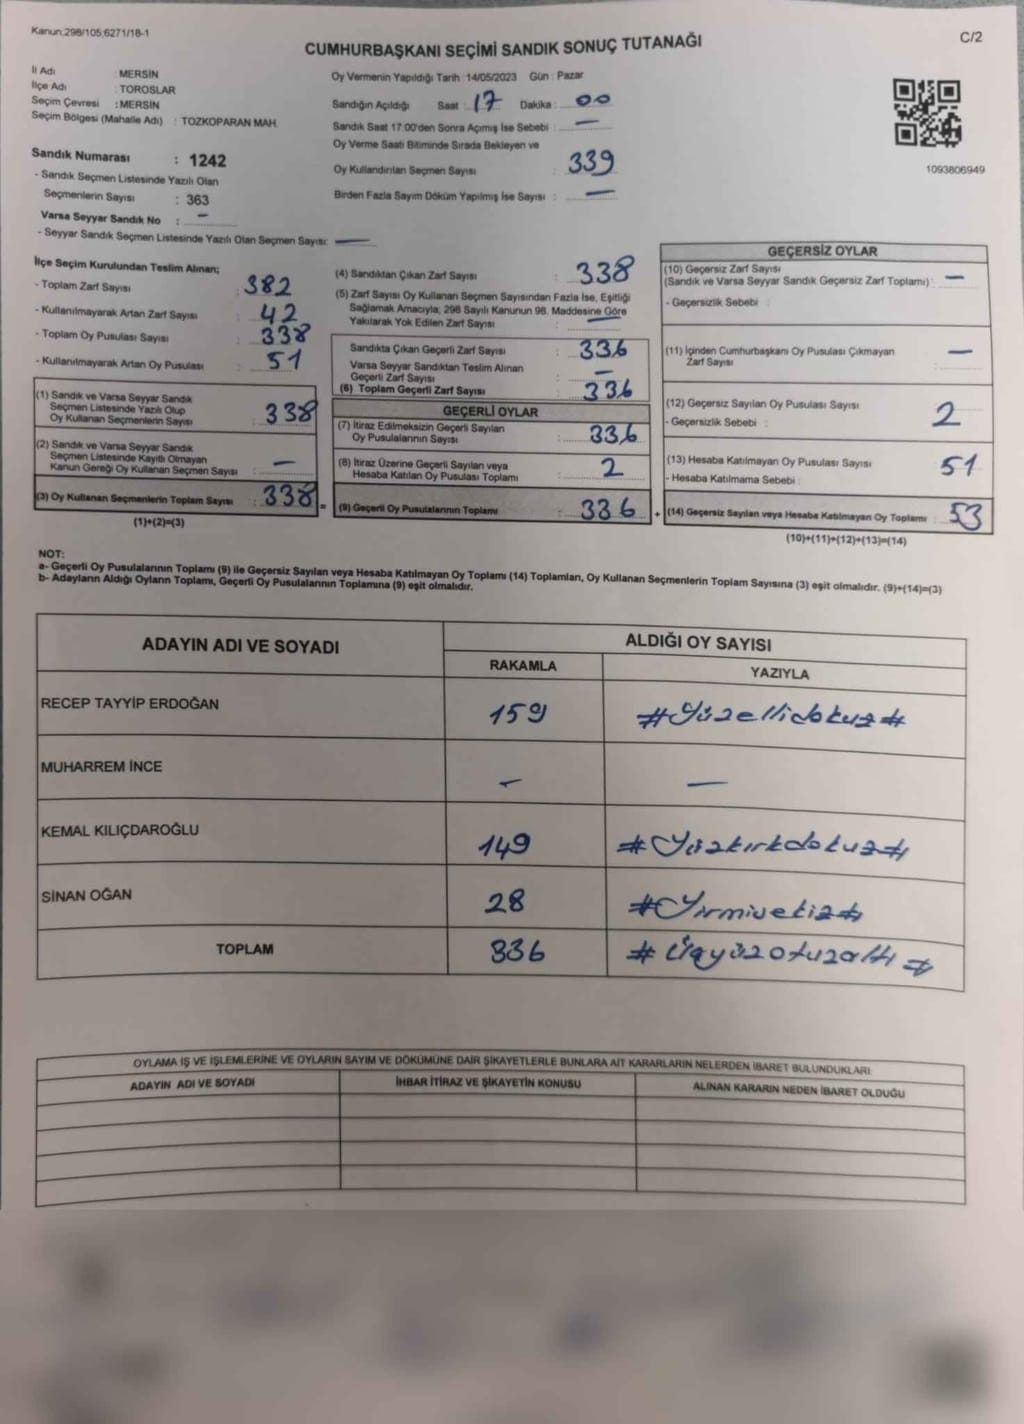 Kanun;298/105,6271/18-1
C/2
CUMHURBAŞKANI SEÇİMİ SANDIK SONUÇ TUTANAĞI
İl Adı : MERSİN
İlçe Adı : TOROSLAR
Seçim Çevresi : MERSİN
Seçim Bölgesi (Mahalle Adı) : TOZKOPARAN MAH.
Sandık Numarası : 1242
- Sandık Seçmen Listesinde Yazılı Olan
Seçmenlerin Sayısı : 363
Varsa Seyyar Sandık No : -
- Seyyar Sandık Seçmen Listesinde Yazılı Olan Seçmen Sayısı: —
Oy Vermenin Yapıldığı Tarih :14/05/2023 Gün : Pazar
Sandığın Açıldığı Saat : 17 Dakika : 00
Sandık Saat 17:00'den Sonra Açımış İse Sebebi : —
Oy Verme Saati Bitiminde Sırada Bekleyen ve
Oy Kullandırılan Seçmen Sayısı : 339
Birden Fazla Sayım Döküm Yapılmış İse Sayısı : —
1093806949
İlçe Seçim Kurulundan Teslim Alınan;
- Toplam Zarf Sayısı : 382
- Kullanılmayarak Artan Zarf Sayısı : 42
- Toplam Oy Pusulası Sayısı : 338
- Kullanılmayarak Artan Oy Pusulası : 51
(1) Sandık ve Varsa Seyyar Sandık
Seçmen Listesinde Yazılı Olup
Oy Kullanan Seçmenlerin Sayısı : 338
(2) Sandık ve Varsa Seyyar Sandık
Seçmen Listesinde Kayıtlı Olmayan
Kanun Gereği Oy Kullanan Seçmen Sayısı : —
(3) Oy Kullanan Seçmenlerin Toplam Sayısı : 338 =
(1)+(2)=(3)
(4) Sandıktan Çıkan Zarf Sayısı : 338
(5) Zarf Sayısı Oy Kullanan Seçmen Sayısından Fazla İse, Eşitliği
Sağlamak Amacıyla, 298 Sayılı Kanunun 98. Maddesine Göre
Yakılarak Yok Edilen Zarf Sayısı : —
Sandıkta Çıkan Geçerli Zarf Sayısı : 336
Varsa Seyyar Sandıktan Teslim Alınan
Geçerli Zarf Sayısı : —
(6) Toplam Geçerli Zarf Sayısı : 336
GEÇERLİ OYLAR
(7) İtiraz Edilmeksizin Geçerli Sayılan
Oy Pusulalarının Sayısı : 336
(8) İtiraz Üzerine Geçerli Sayılan veya
Hesaba Katılan Oy Pusulası Toplamı : 2
(9) Geçerli Oy Pusulalarının Toplamı : 336 +
GEÇERSİZ OYLAR
(10) Geçersiz Zarf Sayısı
(Sandık ve Varsa Seyyar Sandık Geçersiz Zarf Toplamı) : —
- Geçersizlik Sebebi :
(11) İçinden Cumhurbaşkanı Oy Pusulası Çıkmayan
Zarf Sayısı : —
(12) Geçersiz Sayılan Oy Pusulası Sayısı : 2
- Geçersizlik Sebebi :
(13) Hesaba Katılmayan Oy Pusulası Sayısı : 51
- Hesaba Katılmama Sebebi :
(14) Geçersiz Sayılan veya Hesaba Katılmayan Oy Toplamı : 53
(10)+(11)+(12)+(13)=(14)
NOT:
a- Geçerli Oy Pusulalarının Toplamı (9) ile Geçersiz Sayılan veya Hesaba Katılmayan Oy Toplamı (14) Toplamları, Oy Kullanan Seçmenlerin Toplam Sayısına (3) eşit olmalıdır. (9)+(14)=(3)
b- Adayların Aldığı Oyların Toplamı, Geçerli Oy Pusulalarının Toplamına (9) eşit olmalıdır.
ADAYIN ADI VE SOYADI
ALDIĞI OY SAYISI
RAKAMLA YAZIYLA
RECEP TAYYİP ERDOĞAN 159 #Yüzellidokuz#
MUHARREM İNCE - —
KEMAL KILIÇDAROĞLU 149 #Yüzkırkdokuz#
SİNAN OĞAN 28 #Yirmisekiz#
TOPLAM 336 #Üçyüzotuzaltı#
OYLAMA İŞ VE İŞLEMLERİNE VE OYLARIN SAYIM VE DÖKÜMÜNE DAİR ŞİKAYETLERLE BUNLARA AİT KARARLARIN NELERDEN İBARET BULUNDUKLARI
ADAYIN ADI VE SOYADI İHBAR İTİRAZ VE ŞİKAYETİN KONUSU ALINAN KARARIN NEDEN İBARET OLDUĞU